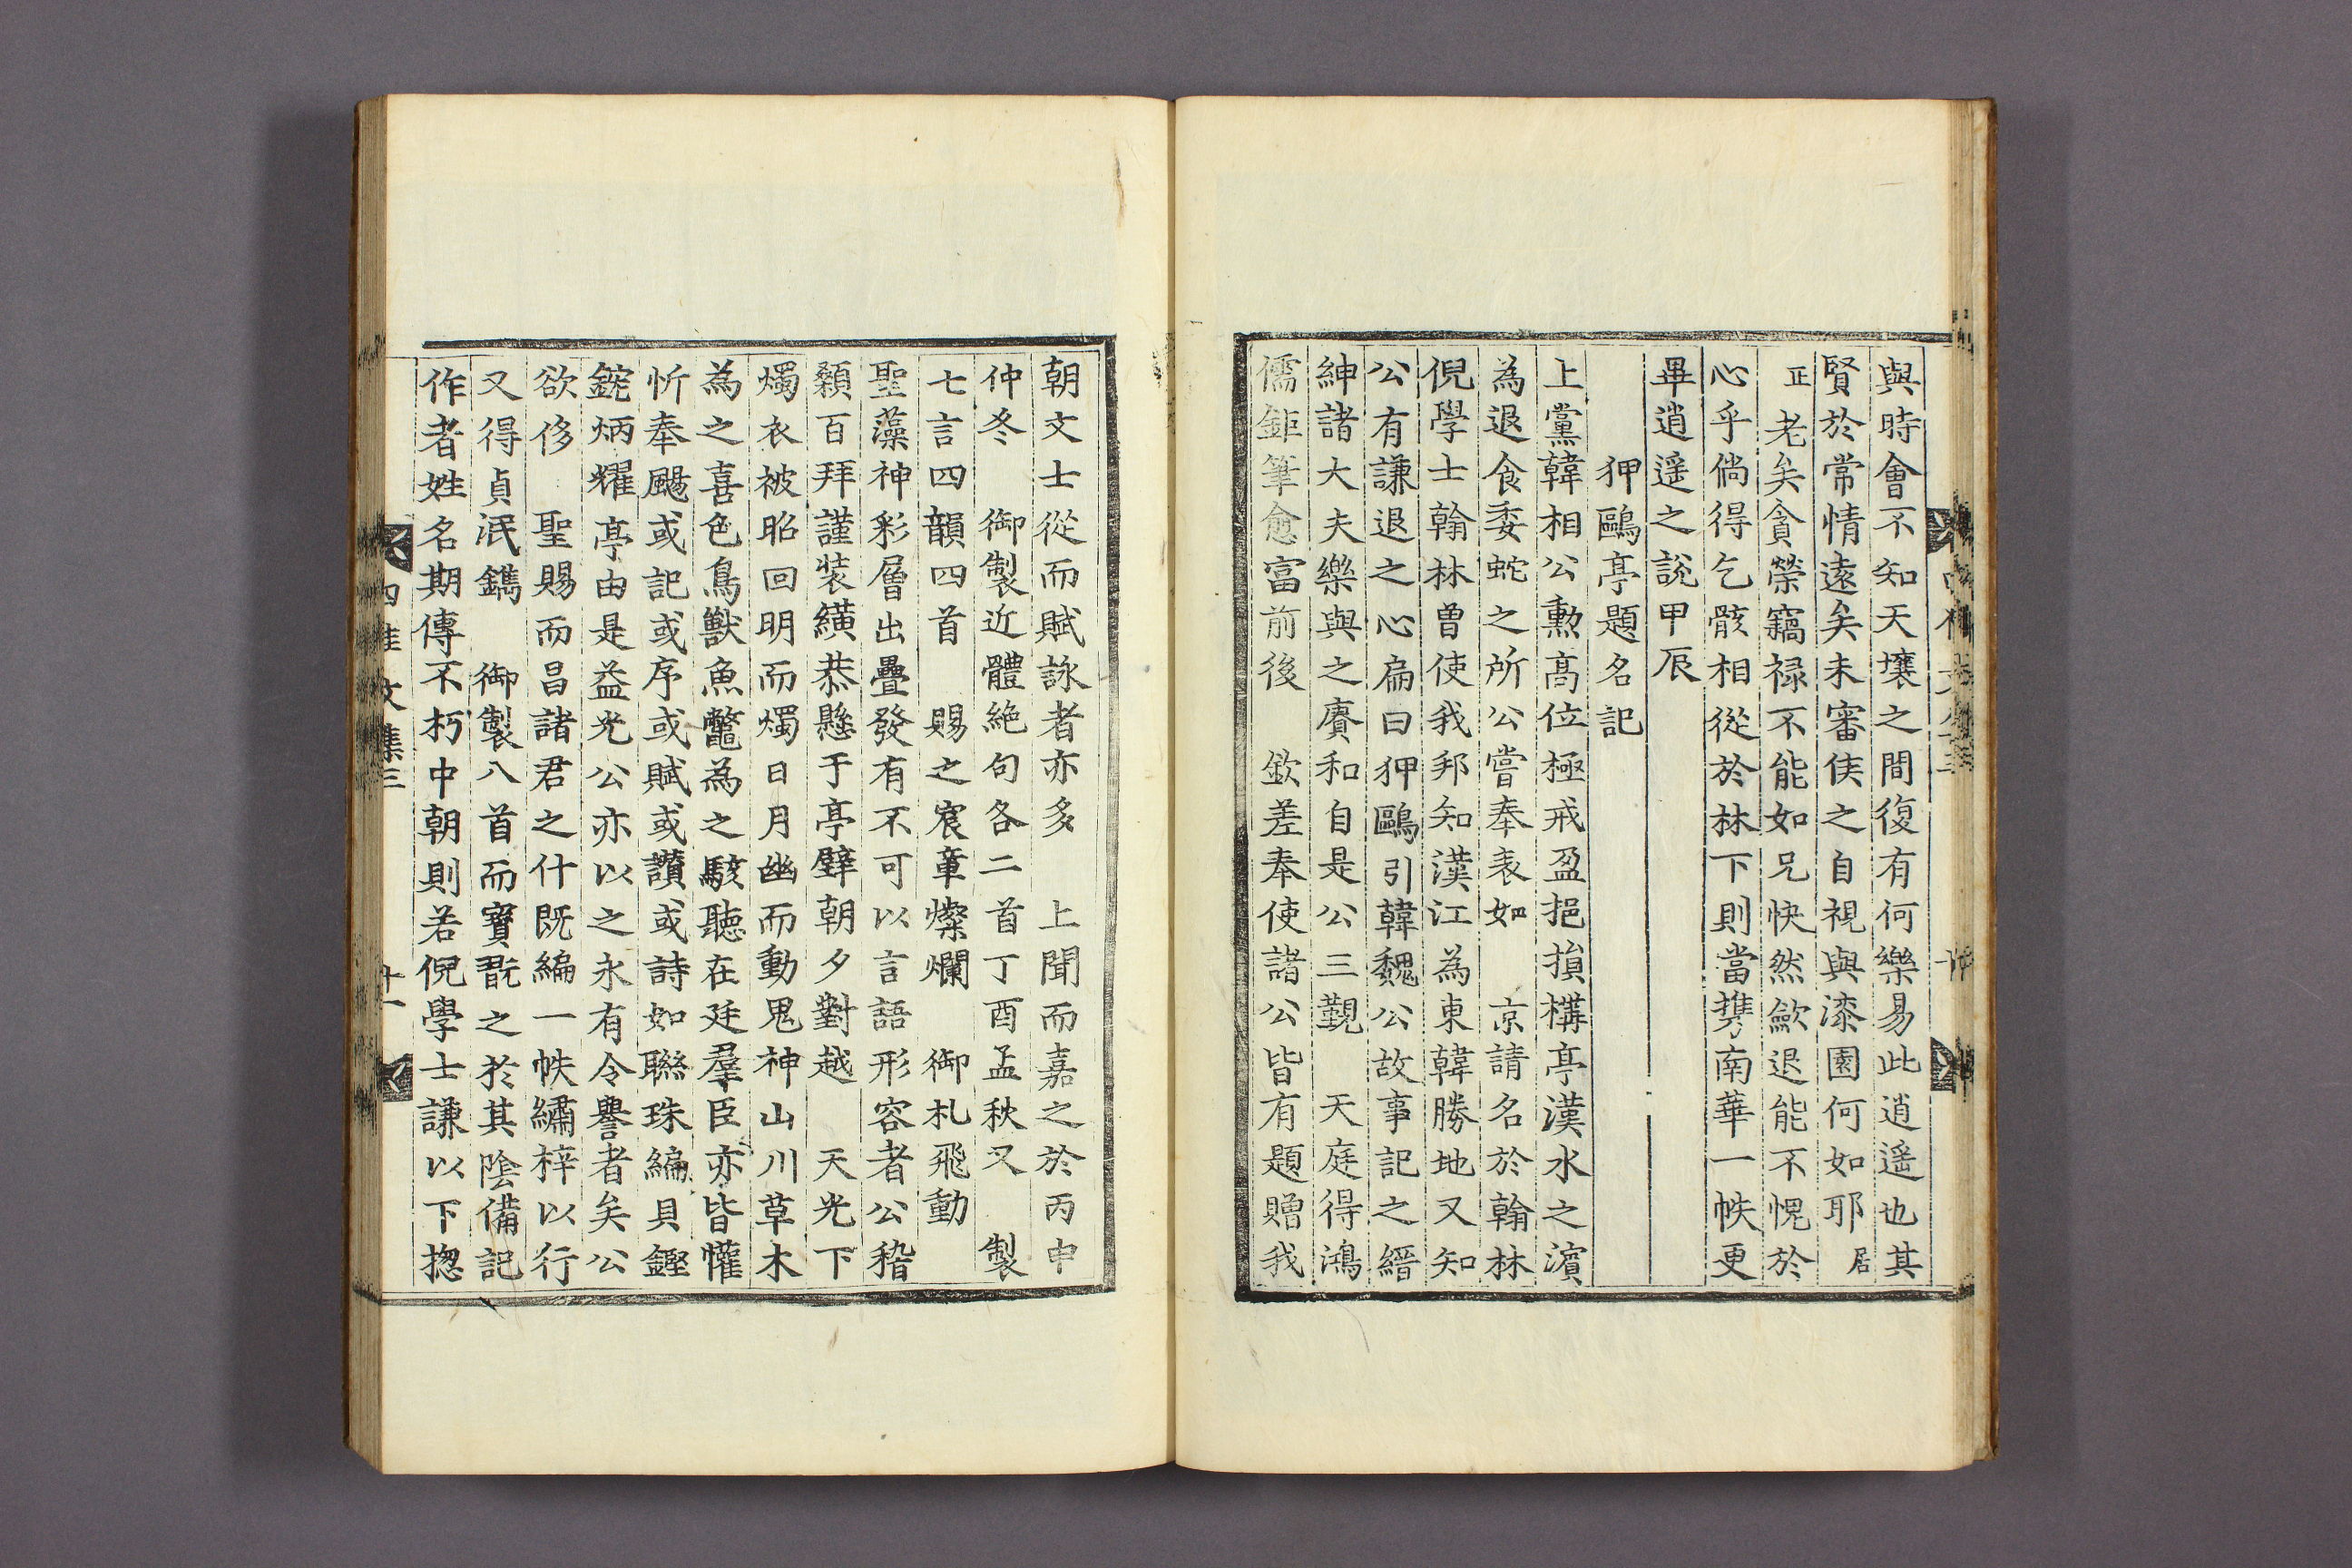 與時會不知天壤之間復有何樂易此逍遥也其
賢於常情遠矣未審侯之自視與漆園何如耶居
正老矣貪榮竊禄不能如兄快然歛退能不愧於
心乎倘得乞骸相從於林下則當携南華一帙更
畢逍遥之說甲辰
狎鷗亭題名記
上黨韓相公勲高位極戒盈挹損構亭漢水之濱
為退食委蛇之所公嘗奉表如 京請名於翰林
倪學士翰林曾使我邦知漢江為東韓勝地又知
公有謙退之心扁曰狎鷗引韓魏公故事記之縉
紳諸大夫樂與之賡和自是公三覲 天庭得鴻
儒鉅筆愈富前後 欽差奉使諸公皆有題贈我
朝文士從而賦詠者亦多 上聞而嘉之於丙申
仲冬 御製近體絶句各二首丁酉孟秋又 製
七言四韻四首 賜之宸章燦爛 御札飛動
聖藻神彩層出疊發有不可以言語形容者公稽
顙百拜謹装繢恭懸于亭壁朝夕對越 天光下
燭衣被昭回明而燭日月幽而動鬼神山川草木
為之喜色鳥獸魚鼈為之駭聽在廷羣臣亦皆懽
忻奉颺或記或序或賦或讃或詩如聯珠編貝鏗
鋐炳耀亭由是益光公亦以之永有令譽者矣公
欲侈 聖賜而昌諸君之什既編一帙繡梓以行
又得貞珉鐫 御製八首而寳翫之於其陰備記
作者姓名期傳不朽中朝則若倪學士謙以下揔
四佳文集三
廿一